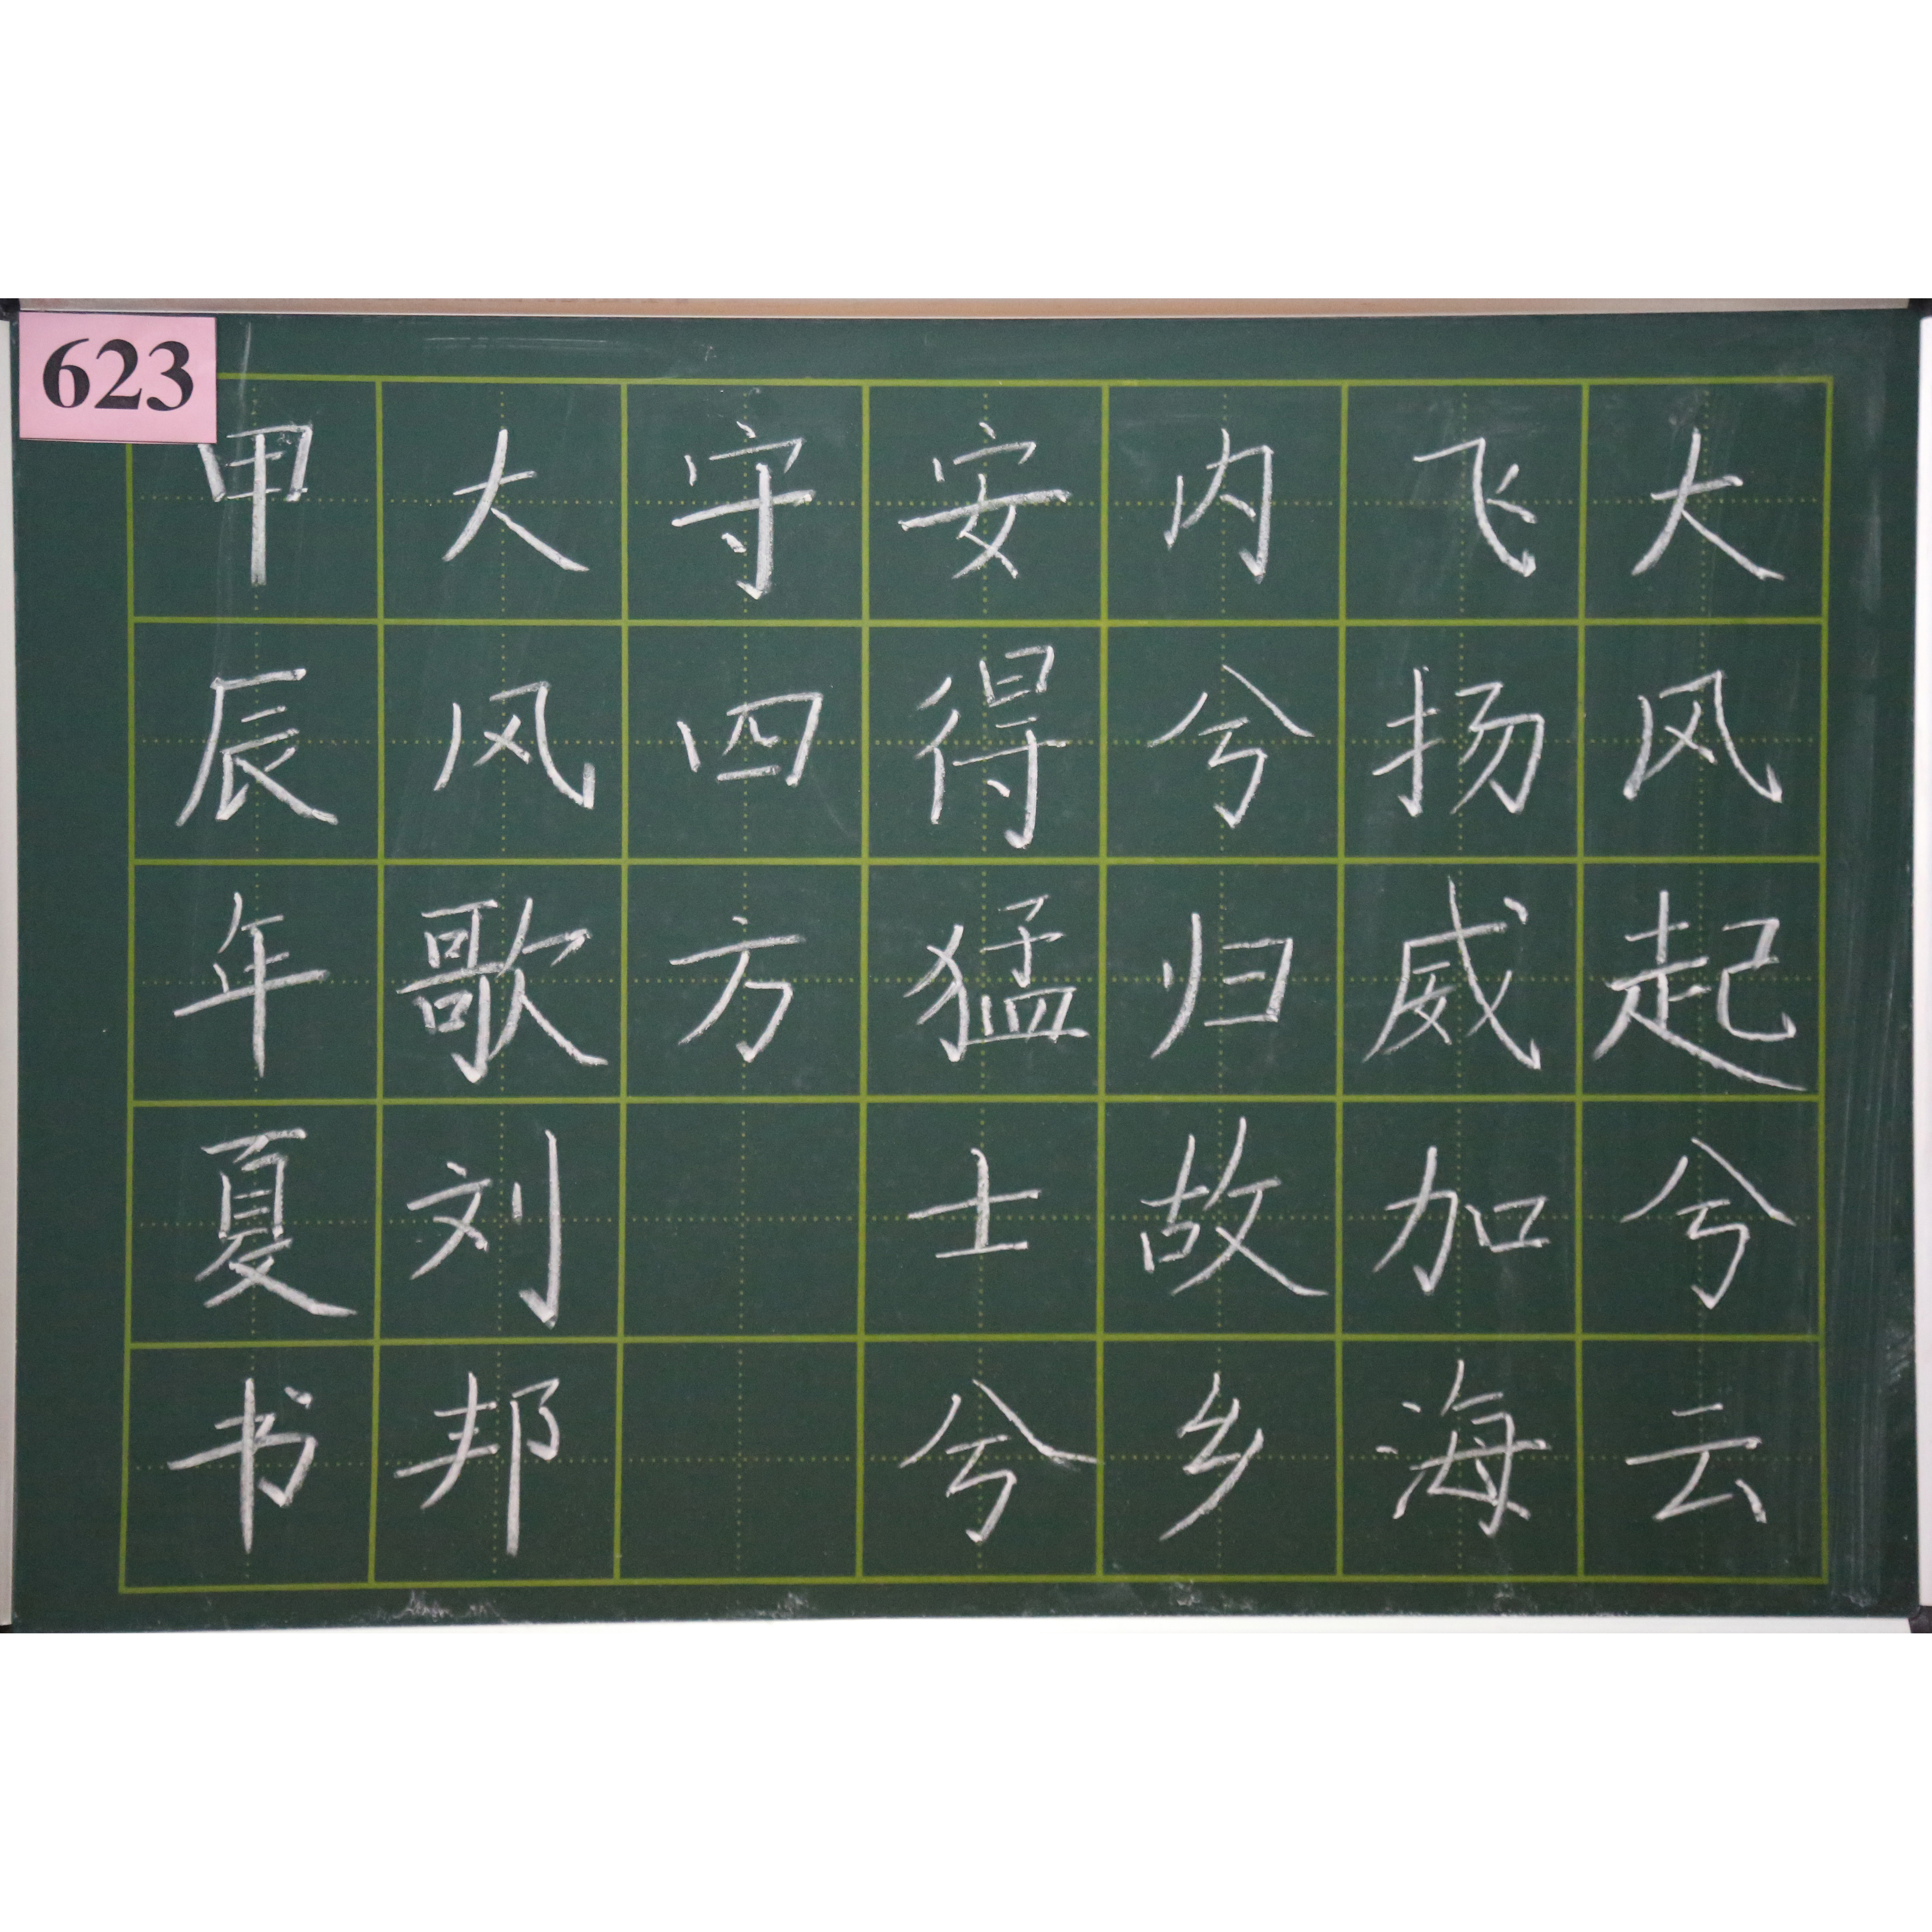 623
大风起兮云
飞扬威加海
内兮归故乡
安得猛士兮
守四方
大风歌刘邦
甲辰年夏书